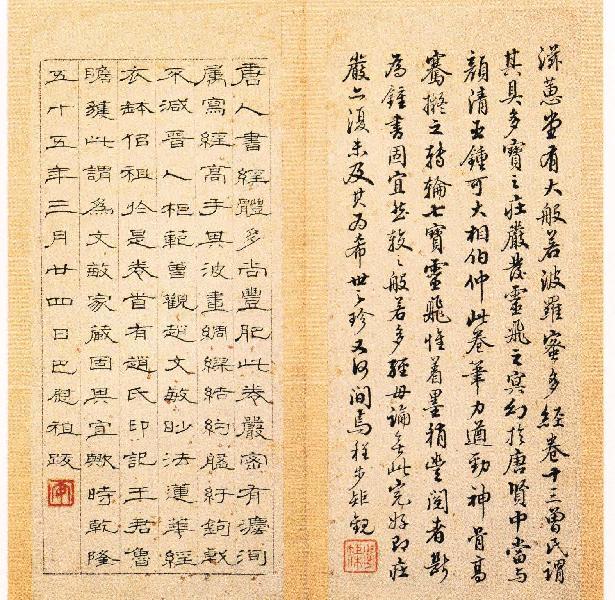 滋蕙堂有大般若波羅蜜多經卷十三曾氏謂
其具多寶之莊嚴發靈飛之冥幻於唐賢中當与
顏清臣鍾可大相伯仲此卷筆力遒勁神骨高
騫擬之轉輪七寶靈飛惟着墨稍豐閱者斷
為鍾書固宜然較之般若多經毋論無此完好即莊
嚴亦復未及其為希世之珍又何間焉程步矩觀
唐人書經體多尚豐肥此卷嚴密有洞
屬寫經高手其波畫綢繆結約紆鉤戟
不減晉人柜範曾觀趙文敏妙法蓮華經
衣缽侶祖於是卷首有趙氏印記王君魯
瞻此謂為文敏家藏固其宜歟時乾隆
五十五年三月廿四日巴慰祖跋